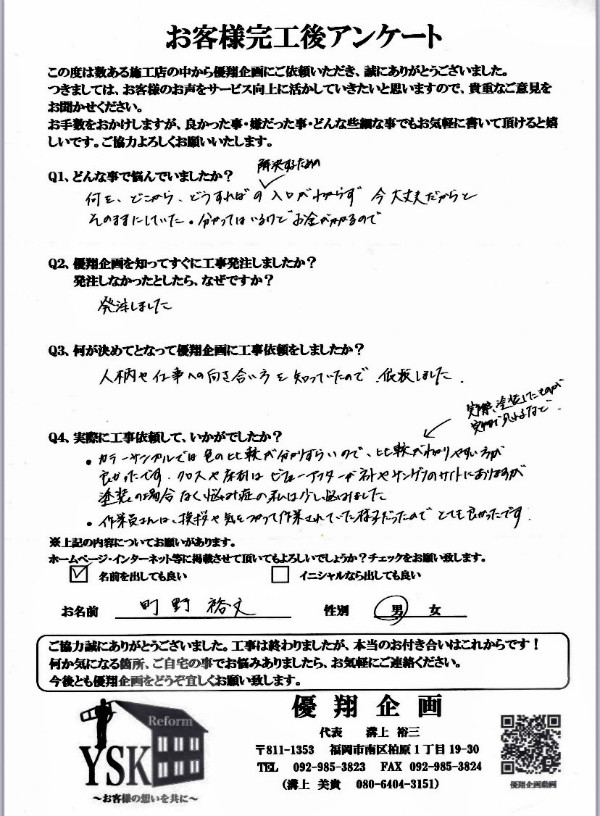 お客様完工後アンケート
この度は数ある施工店の中から優翔企画にご依頼いただき、誠にありがとうございました。
つきましては、お客様のお声をサービス向上に活かしていきたいと思いますので、貴重なご意見を
お聞かせください。
お手数をおかけしますが、良かった事・嫌だった事・どんな些細な事でもお気軽に書いて頂けると嬉
しいです。ご協力よろしくお願いいたします。
Q1、どんな事で悩んでいましたか？
解決するための
何を、どこから、どうすればの入口がわからず 今大丈夫だからと
そのままにしていた。分かってはいるけどお金がかかるので
Q2、優翔企画を知ってすぐに工事発注しましたか？
発注しなかったとしたら、なぜですか？
発注しました
Q3、何が決めてとなって優翔企画に工事依頼をしましたか？
人柄や仕事への向き合い方を知っていたので、依頼しました。
Q4、実際に工事依頼して、いかがでしたか？
実際、塗装したものが
・カラーサンプルでは色の比較が分かりずらいので、比較がわかりやすい方が
良かったです。クロスや床材はビューアーや
塗装の場合なく悩み症の私は少し悩みました
・作業員さんは、挨拶や気をつかって作業されていた様子だったのでとても良かったです。
※上記の内容についてお願いがあります。
ホームページ・インターネット等に掲載させて頂いてもよろしいでしょうか？チェックをお願い致します。
☑ 名前を出しても良い □ イニシャルなら出しても良い
お名前 町野 裕文 性別 男 女
ご協力誠にありがとうございました。工事は終わりましたが、本当のお付き合いはこれからです！
何か気になる箇所、ご自宅の事でお悩みありましたら、お気軽にご連絡ください。
今後とも優翔企画をどうぞ宜しくお願い致します。
Reform
YSK
～お客様の想いを共に～
優翔企画
代表 溝上 裕三
〒811-1353 福岡市南区柏原１丁目19-30
TEL 092-985-3823 FAX 092-985-3824
（溝上 美貴 080-6404-3151）
優翔企画動画